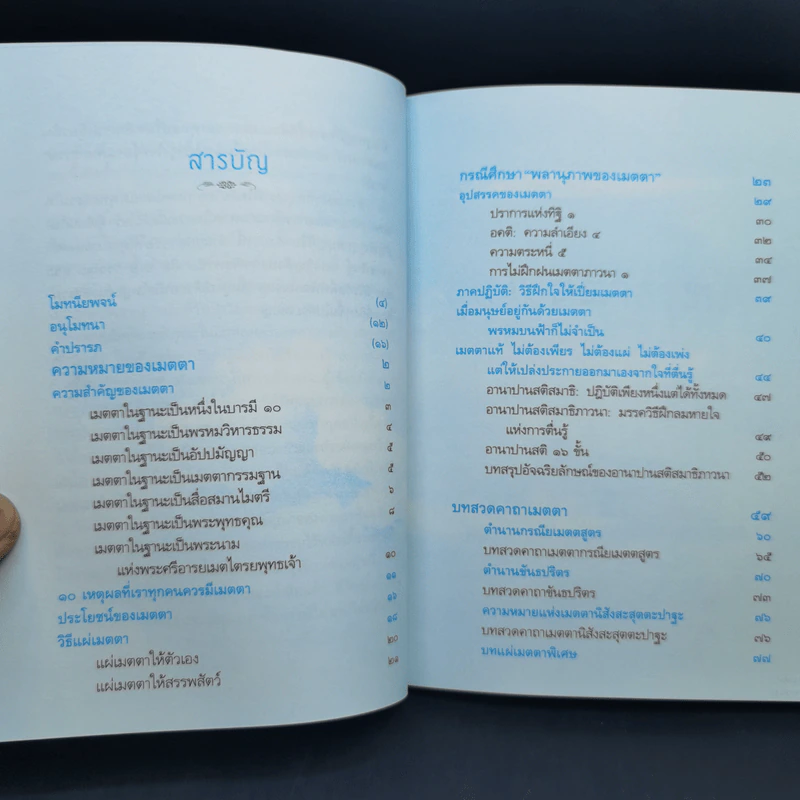 สารบัญ
โมทนียพจน์ (๔)
อนุโมทนา (๑๒)
คำปรารภ (๑๖)
ความหมายของเมตตา ๒
ความสำคัญของเมตตา ๒
เมตตาในฐานะเป็นหนึ่งในบารมี ๑๐ ๓
เมตตาในฐานะเป็นพรหมวิหารธรรม ๔
เมตตาในฐานะเป็นอัปปมัญญา ๕
เมตตาในฐานะเป็นเมตตากรรมฐาน ๕
เมตตาในฐานะเป็นสื่อสมานไมตรี ๖
เมตตาในฐานะเป็นพระพุทธคุณ ๘
เมตตาในฐานะเป็นพระนาม
แห่งพระศรีอารยเมตไตรยพุทธเจ้า ๑๐
๑๐ เหตุผลที่เราทุกคนควรมีเมตตา ๑๑
ประโยชน์ของเมตตา ๑๖
วิธีแผ่เมตตา ๑๘
แผ่เมตตาให้ตัวเอง ๒๐
แผ่เมตตาให้สรรพสัตว์ ๒๑
กรณีศึกษา "พลานุภาพของเมตตา" ๒๓
อุปสรรคของเมตตา ๒๙
ปราการแห่งทิฐิ ๑ ๓๐
อคติ: ความลำเอียง ๔ ๓๒
ความตระหนี่ ๕ ๓๔
การไม่ฝึกฝนเมตตาภาวนา ๑ ๓๗
ภาคปฏิบัติ: วิธีฝึกใจให้เปี่ยมเมตตา ๓๙
เมื่อมนุษย์อยู่กันด้วยเมตตา
พรหมบนฟ้าก็ไม่จำเป็น ๔๐
เมตตาแท้ ไม่ต้องเพียร ไม่ต้องแผ่ ไม่ต้องเพ่ง
แต่ให้เปล่งประกายออกมาเองจากใจที่ตื่นรู้ ๔๔
อานาปานสติสมาธิ: ปฏิบัติเพียงหนึ่งแต่ได้ทั้งหมด ๔๗
อานาปานสติสมาธิภาวนา: มรรควิธีฝึกลมหายใจ
แห่งการตื่นรู้ ๔๙
อานาปานสติ ๑๖ ขั้น ๕๐
บทสรุปอัจฉริยลักษณ์ของอานาปานสติสมาธิภาวนา ๕๒
บทสวดคาถาเมตตา ๕๙
ตำนานกรณียเมตตสูตร ๖๐
บทสวดคาถาเมตตากรณียเมตตสูตร ๖๕
ตำนานขันธปริตร ๗๐
บทสวดคาถาขันธปริตร ๗๓
ความหมายแห่งเมตตานิสังสะสุตตะปาฐะ ๗๖
บทสวดคาถาเมตตานิสังสะสุตตะปาฐะ ๗๖
บทแผ่เมตตาพิเศษ ๗๗